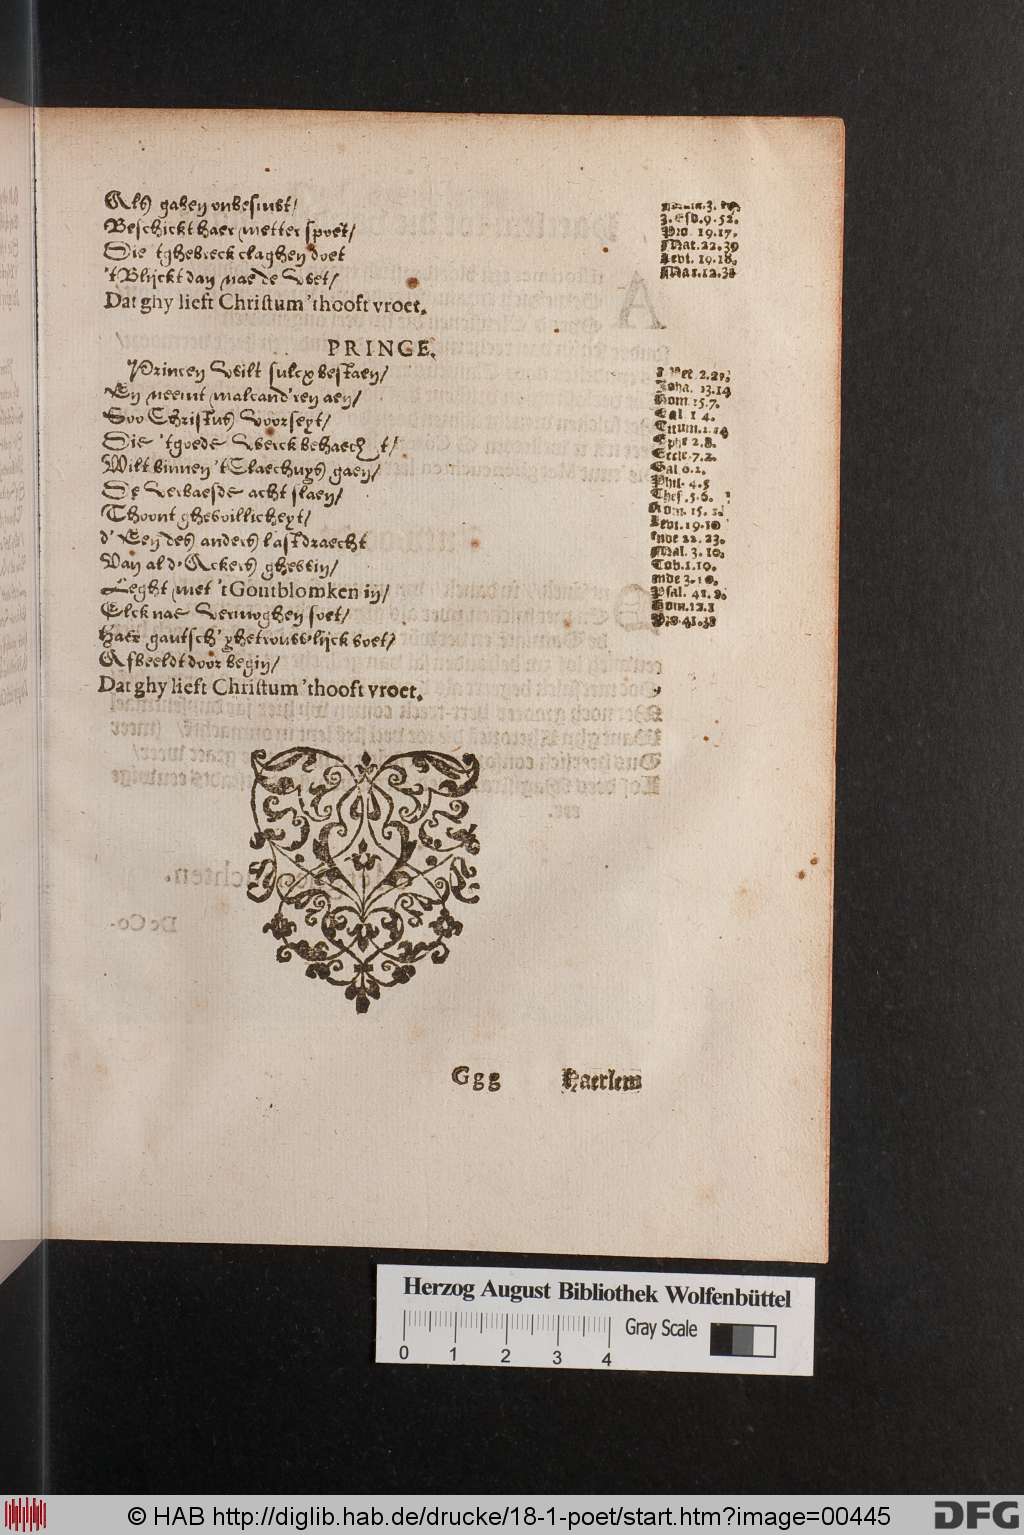 Als gaben onbesinst/
Beschickt haer metter spoet/
Die 'tghebreck claghen doet
't Blijckt dan nae de Wet/
Dat ghy lieft Christum 'thooft vroet.
PRINGE.
Princen wilt sulcx bestaen/
En neemt malcand'ren aen/
Soo Christus voorseyt/
Die 'tgoede werck behaecht/
Wilt binnen 't Claechuys gaen/
De verbaesde acht slaen/
Thoont ghewillicheyt/
d' Een des anders last draecht
Van al d'Ackers ghewin/
Leght met 't Goutblomken in/
Elck nae vermoghen soet/
Haer gantsch' ghetrouwlijck voet/
Afbeeldt door begin/
Dat ghy lieft Christum 'thooft vroet.
3. Esd. 9. 52.
Pro. 19. 17.
Mat. 22. 39
Levi. 19. 18.
Mar. 12. 31
1 Pet. 2. 21.
Joha. 13. 14
Rom. 15. 7.
Gal. 1 4.
Titum. 2. 14
Ephe 2. 8.
Eccle. 7. 2.
Gal 6. 2.
Phil. 4. 5
Thes. 5. 6.
Rom. 15. 1.
Levi. 19. 10
Mal. 3. 10.
Tob. 1. 10.
Psal. 41. 2.
Rom. 12. 1
Ggg
Haerlem
Herzog August Bibliothek Wolfenbüttel
Gray Scale
0 1 2 3 4
© HAB http://diglib.hab.de/drucke/18-1-poet/start.htm?image=00445
DFG